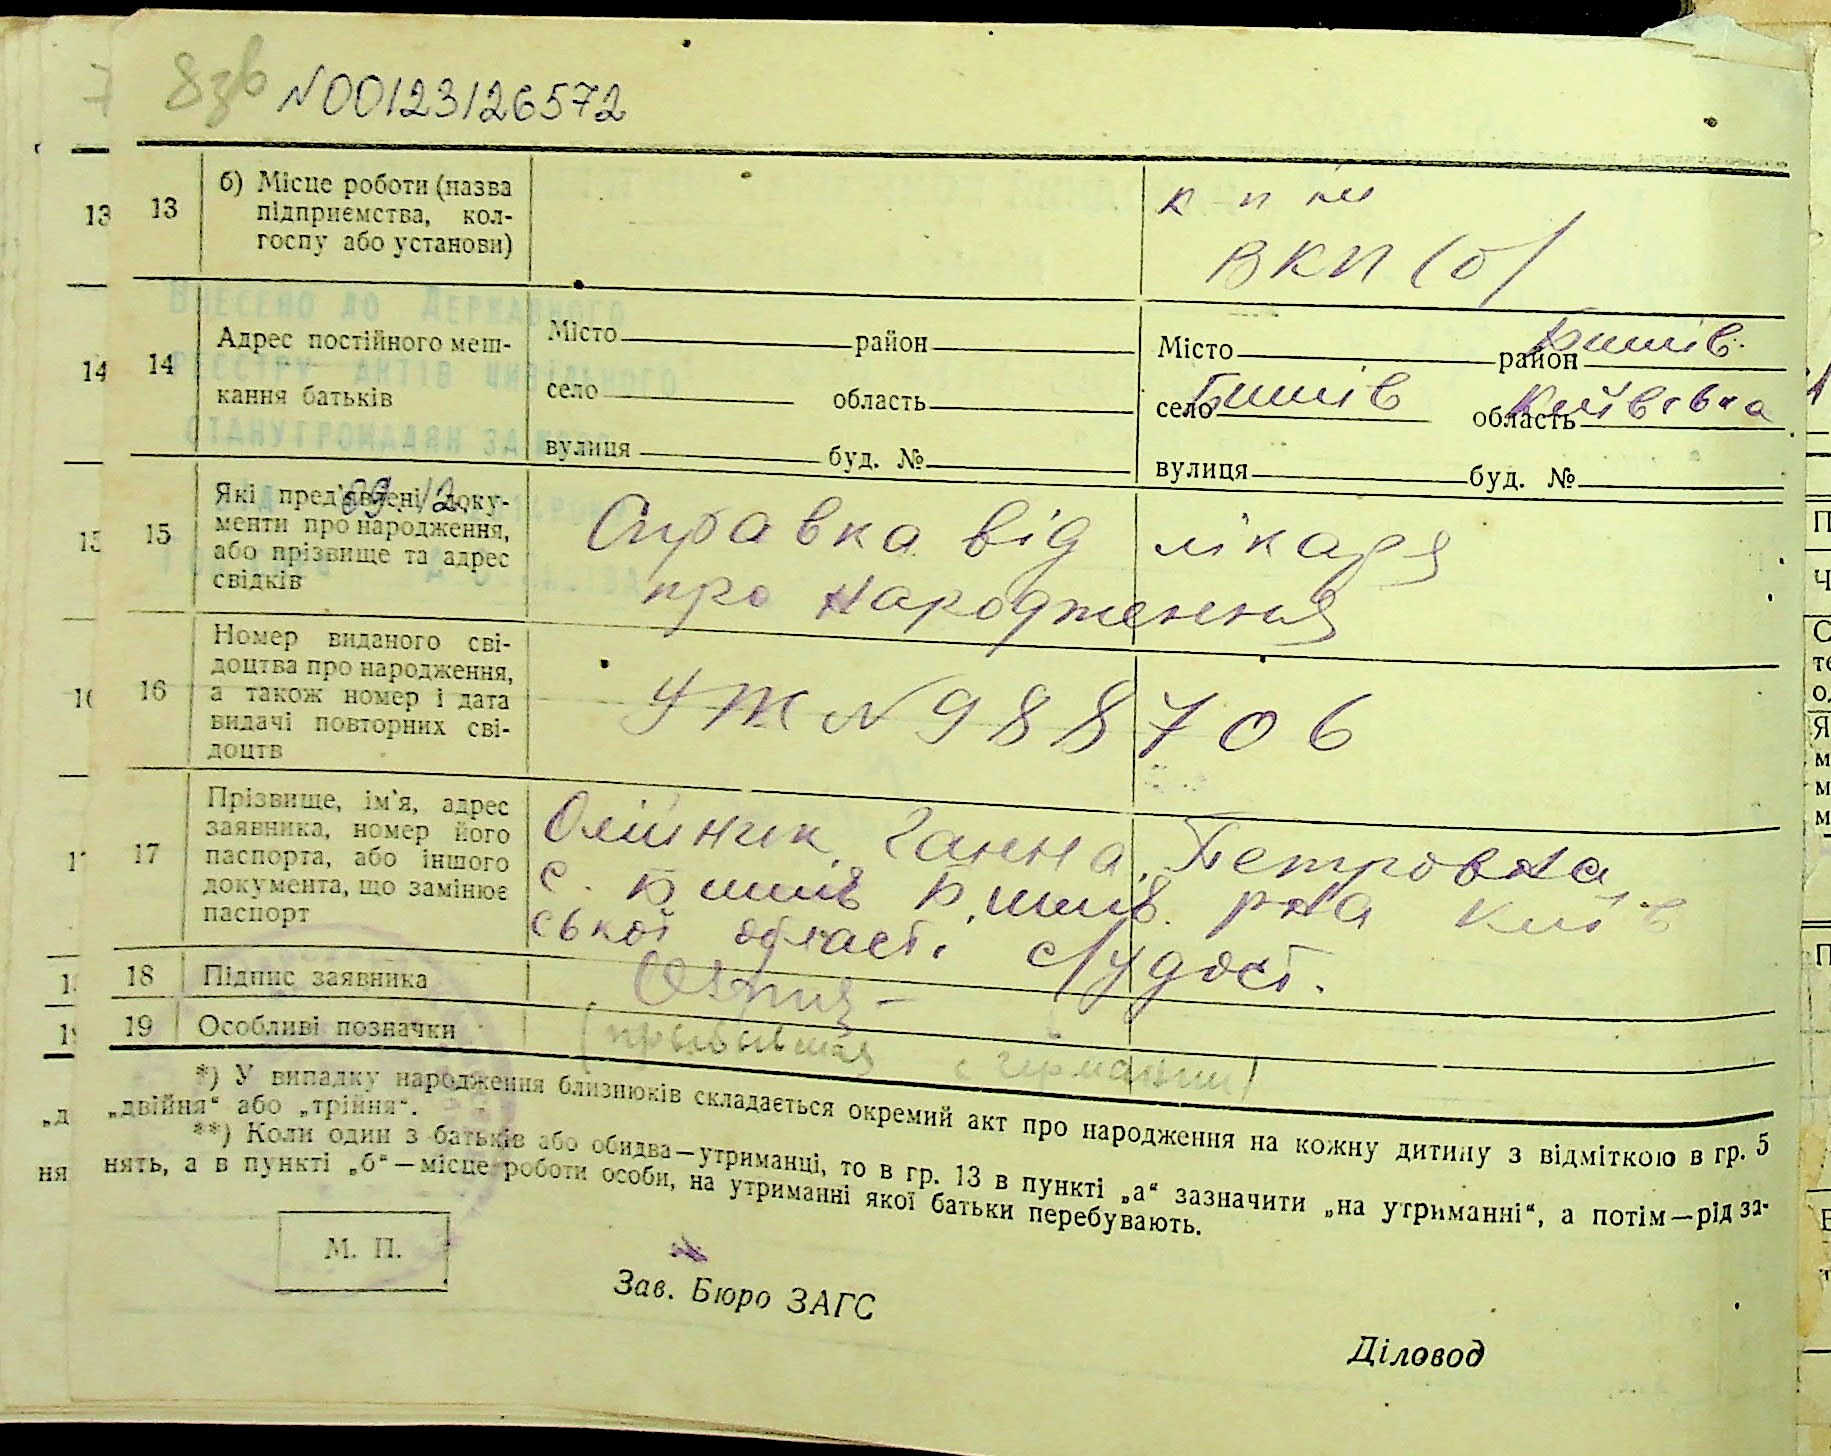 8зв №00123126572
13 б) Місце роботи (назва
підприємства, кол-
госпу або установи)
к п
ВКП(б)
14 Адрес постійного меш-
кання батьків
Місто район
село область
вулиця буд. №
Місто район Бишів
село Бишів область Київська
вулиця буд. №
Внесено до Державного
реєстру актів цивільного
стану громадян за
09.12.
15 Які пред'явлені доку-
менти про народження,
або прізвище та адрес
свідків
Справка від лікаря
про народження
16 Номер виданого сві-
доцтва про народження,
а також номер і дата
видачі повторних сві-
доцтв
УЖ N 988706
17 Прізвище, ім'я, адрес
заявника, номер його
паспорта, або іншого
документа, що замінює
паспорт
Олійник Ганна Петровна
с. Бишів Бишів. р-на Київ
ської област. удост.
18 Підпис заявника
19 Особливі позначки
(прибывшая с германии)
*) У випадку народження близнюків складається окремий акт про народження на кожну дитину з відміткою в гр. 5
„двійня“ або „трійня“.
**) Коли один з батьків або обидва—утриманці, то в гр. 13 в пункті „а“ зазначити „на утриманні“, а потім—рід за-
нять, а в пункті „б“—місце роботи особи, на утриманні якої батьки перебувають.
М. П.
Зав. Бюро ЗАГС
Діловод